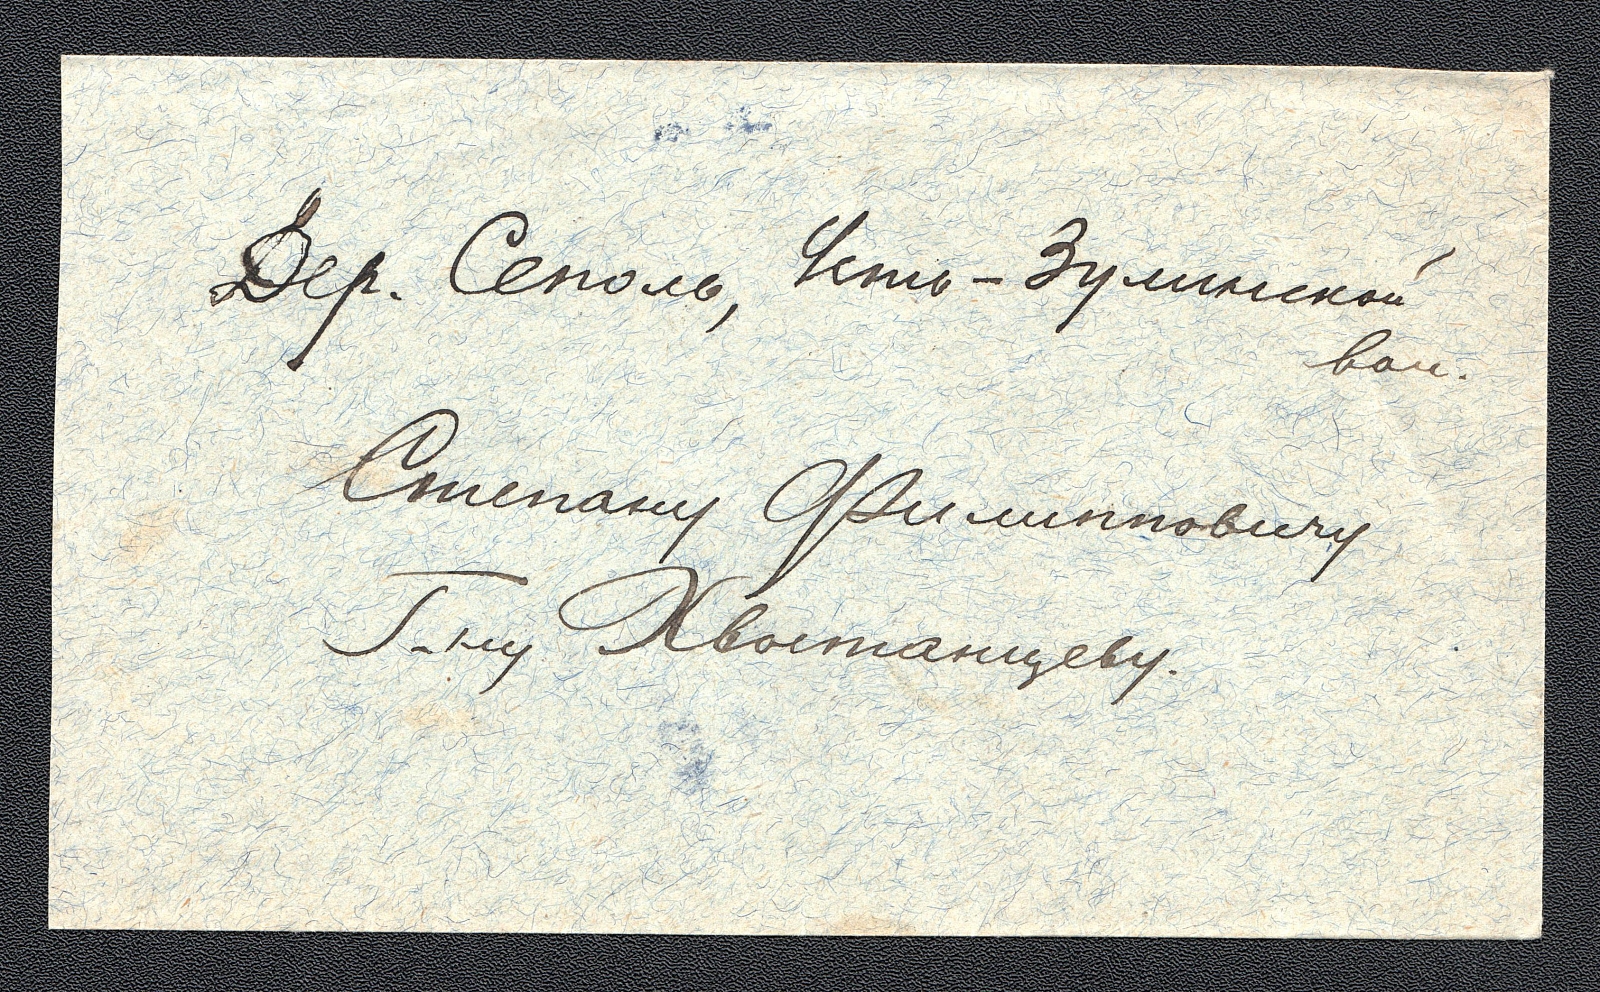 Дер. Сеполь, Усть-Зулинской
вол.
Степану Филипповичу
Г-ну Хвостанцеву.